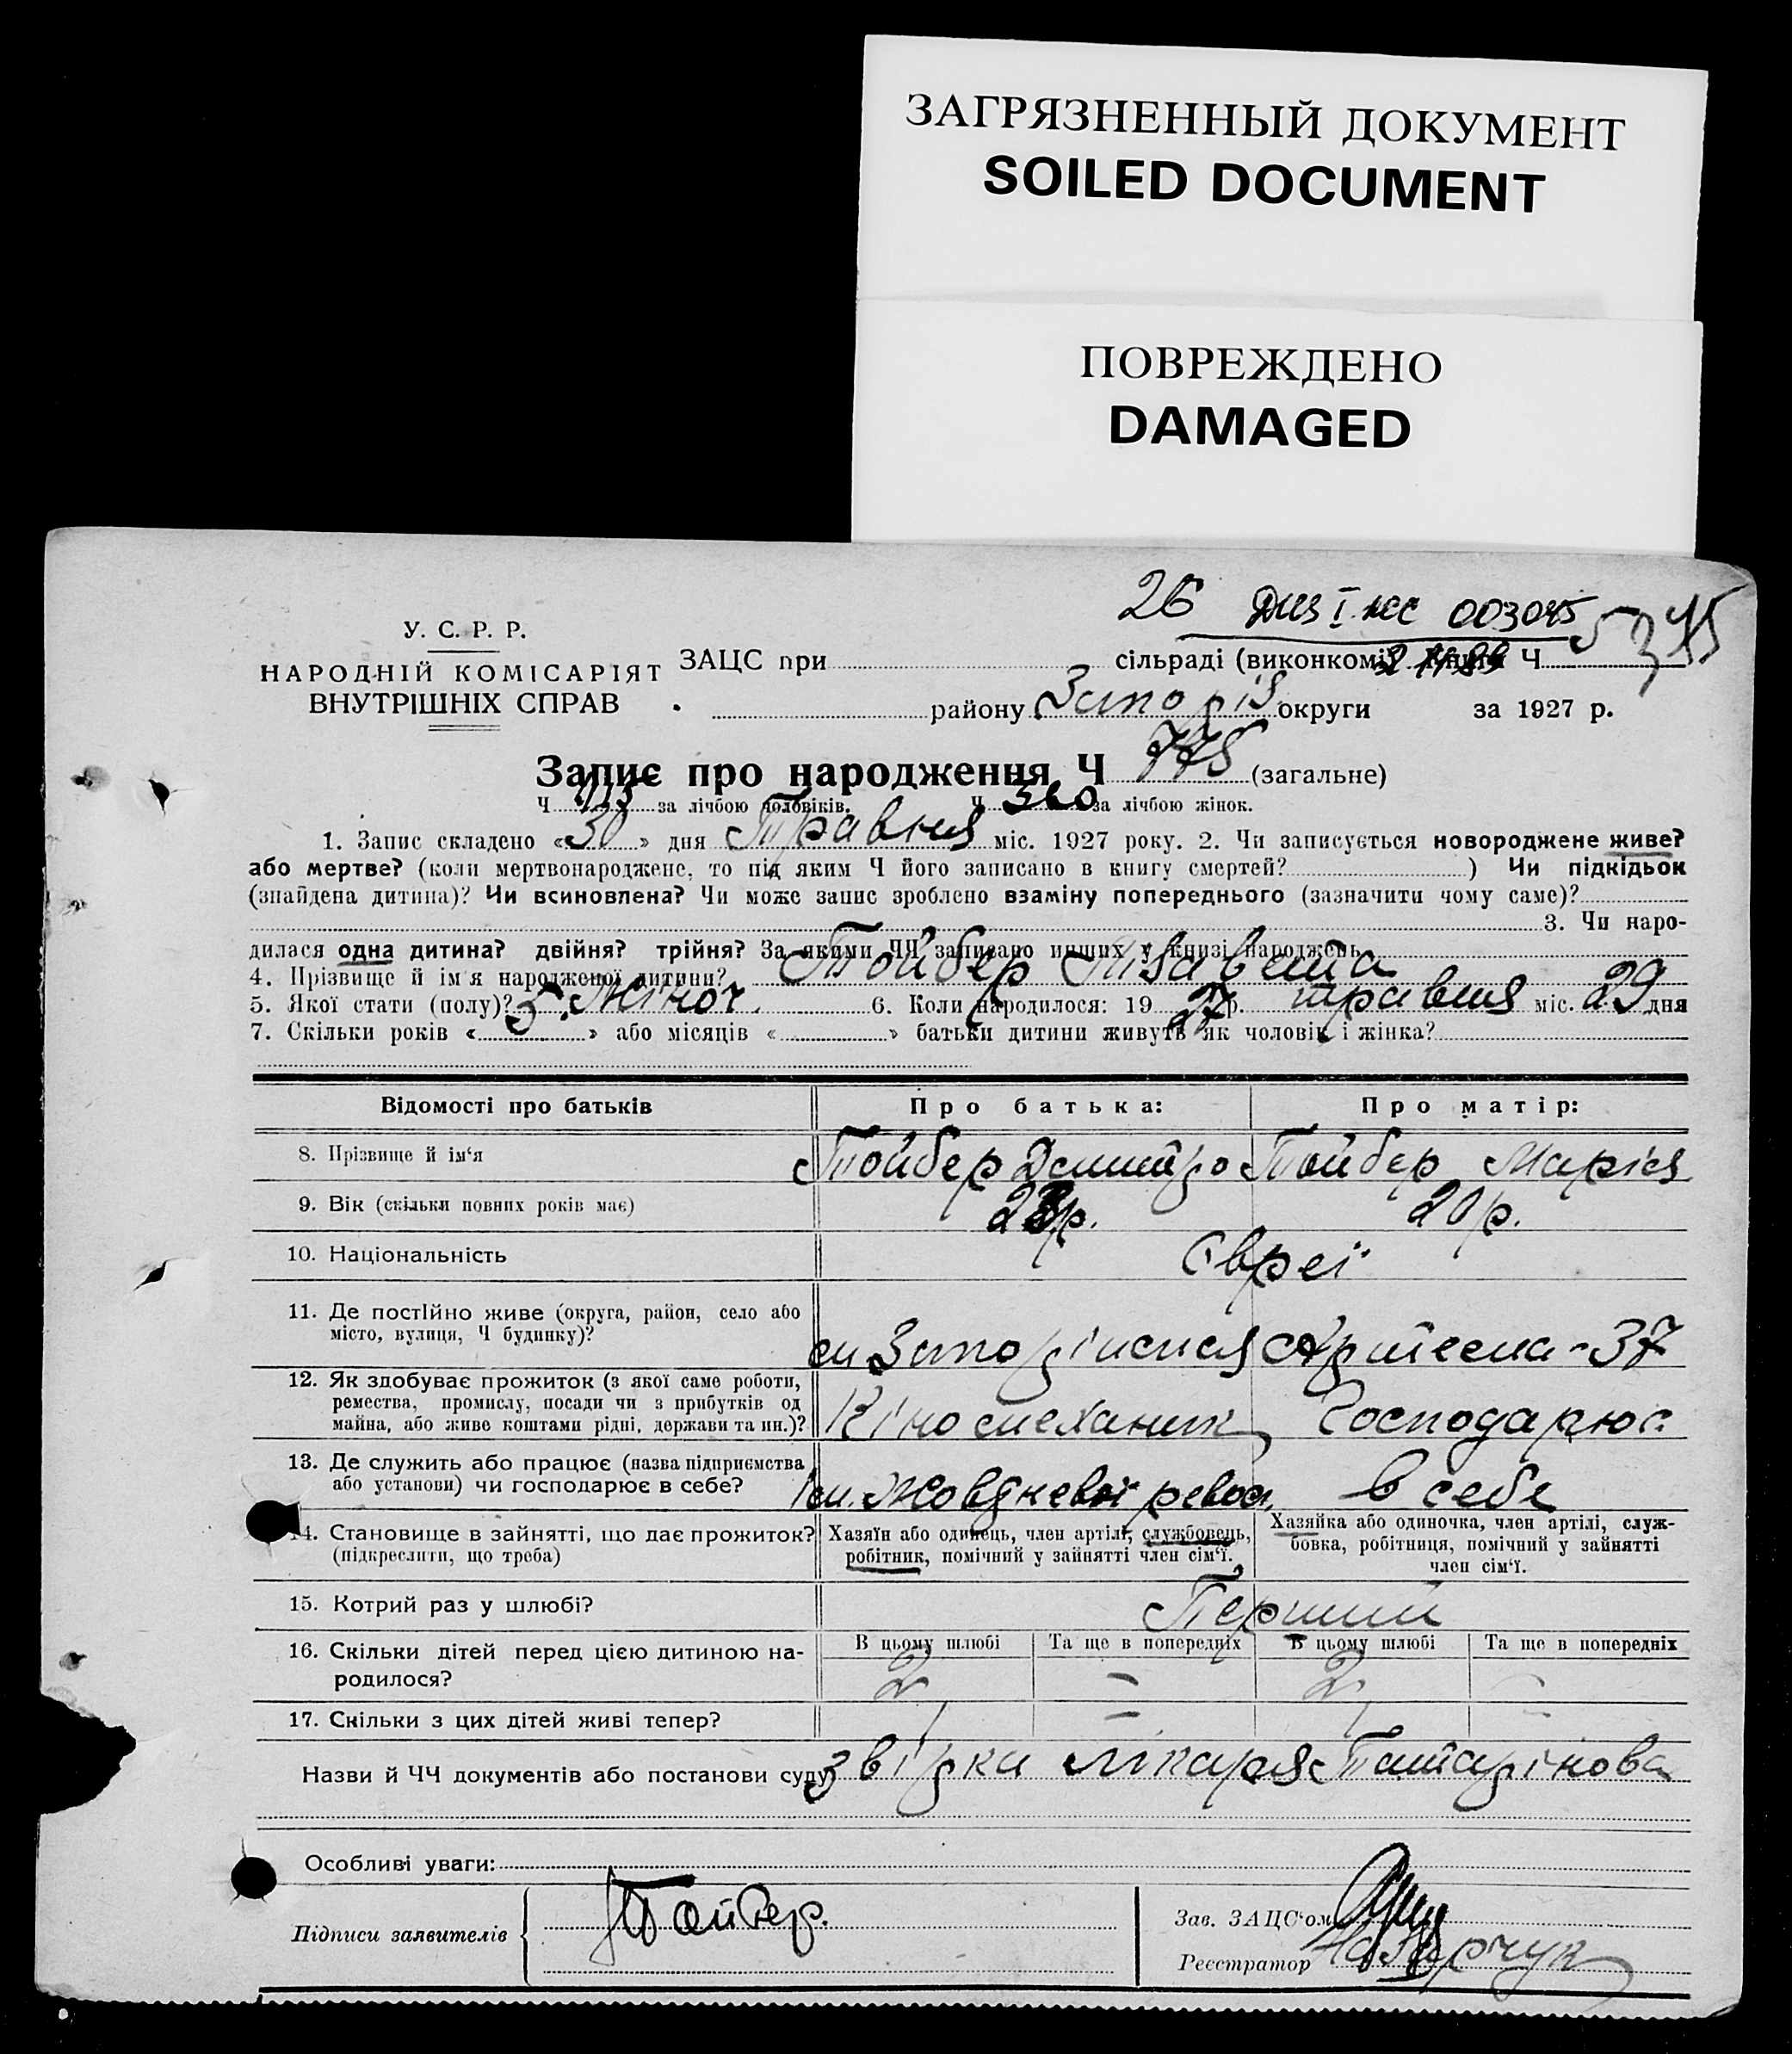 ЗАГРЯЗНЕННЫЙ ДОКУМЕНТ
SOILED DOCUMENT
ПОВРЕЖДЕНО
DAMAGED
26 003045
5345
У. С. Р. Р.
НАРОДНІЙ КОМІСАРІЯТ
ВНУТРІШНІХ СПРАВ
ЗАЦС при сільраді (виконкомі) Книга Ч
району Запоріз округи за 1927 р.
Запис про народження Ч 775 (загальне)
Ч за лічбою чоловіків. Ч 360 за лічбою жінок.
1. Запис складено «30» дня Травня міс. 1927 року. 2. Чи записується новороджене живе?
або мертве? (коли мертвонароджене, то під яким Ч його записано в книгу смертей? ) Чи підкідьок
(знайдена дитина)? Чи всиновлена? Чи може запис зроблено взаміну попереднього (зазначити чому саме)?
3. Чи наро-
дилася одна дитина? двійня? трійня? За якими ЧЧ записано инших у книзі народжень
4. Прізвище й ім'я народженої дитини? Тойбер Лізавета
5. Якої стати (полу)? Жіноч. 6. Коли народилося: 1927 р. травня міс. 29 дня
7. Скільки років « » або місяців « » батьки дитини живуть як чоловік і жінка?
Відомості про батьків Про батька: Про матір:
8. Прізвище й ім'я Тойбер Дмитро Тойбер Марія
9. Вік (скільки повних років має) 20 р.
10. Національність Євреї
11. Де постійно живе (округа, район, село або
місто, вулиця, Ч будинку)? м Запоріжжя Артема - 37
12. Як здобуває прожиток (з якої саме роботи,
ремества, промислу, посади чи з прибутків од
майна, або живе коштами рідні, держави та ин.)? Кіномеханик Господарює
13. Де служить або працює (назва підприємства
або установи) чи господарює в себе? ім. Жовтневої револ. в себе
14. Становище в зайнятті, що дає прожиток?
(підкреслити, що треба)
Хазяїн або одинець, член артілі, службовець,
робітник, помічний у зайнятті член сім'ї.
Хазяйка або одиночка, член артілі, служ-
бовка, робітниця, помічний у зайнятті
член сім'ї.
15. Котрий раз у шлюбі? Перший
В цьому шлюбі Та ще в попередніх В цьому шлюбі Та ще в попередніх
16. Скільки дітей перед цією дитиною на-
родилося? 2 - 2 -
17. Скільки з цих дітей живі тепер? 1 - 1 -
Назви й ЧЧ документів або постанови суду звірка лікаря Татарінова
Особливі уваги:
Підписи заявителів Тойбер.
Зав. ЗАЦС'ом
Реєстратор Назарчук